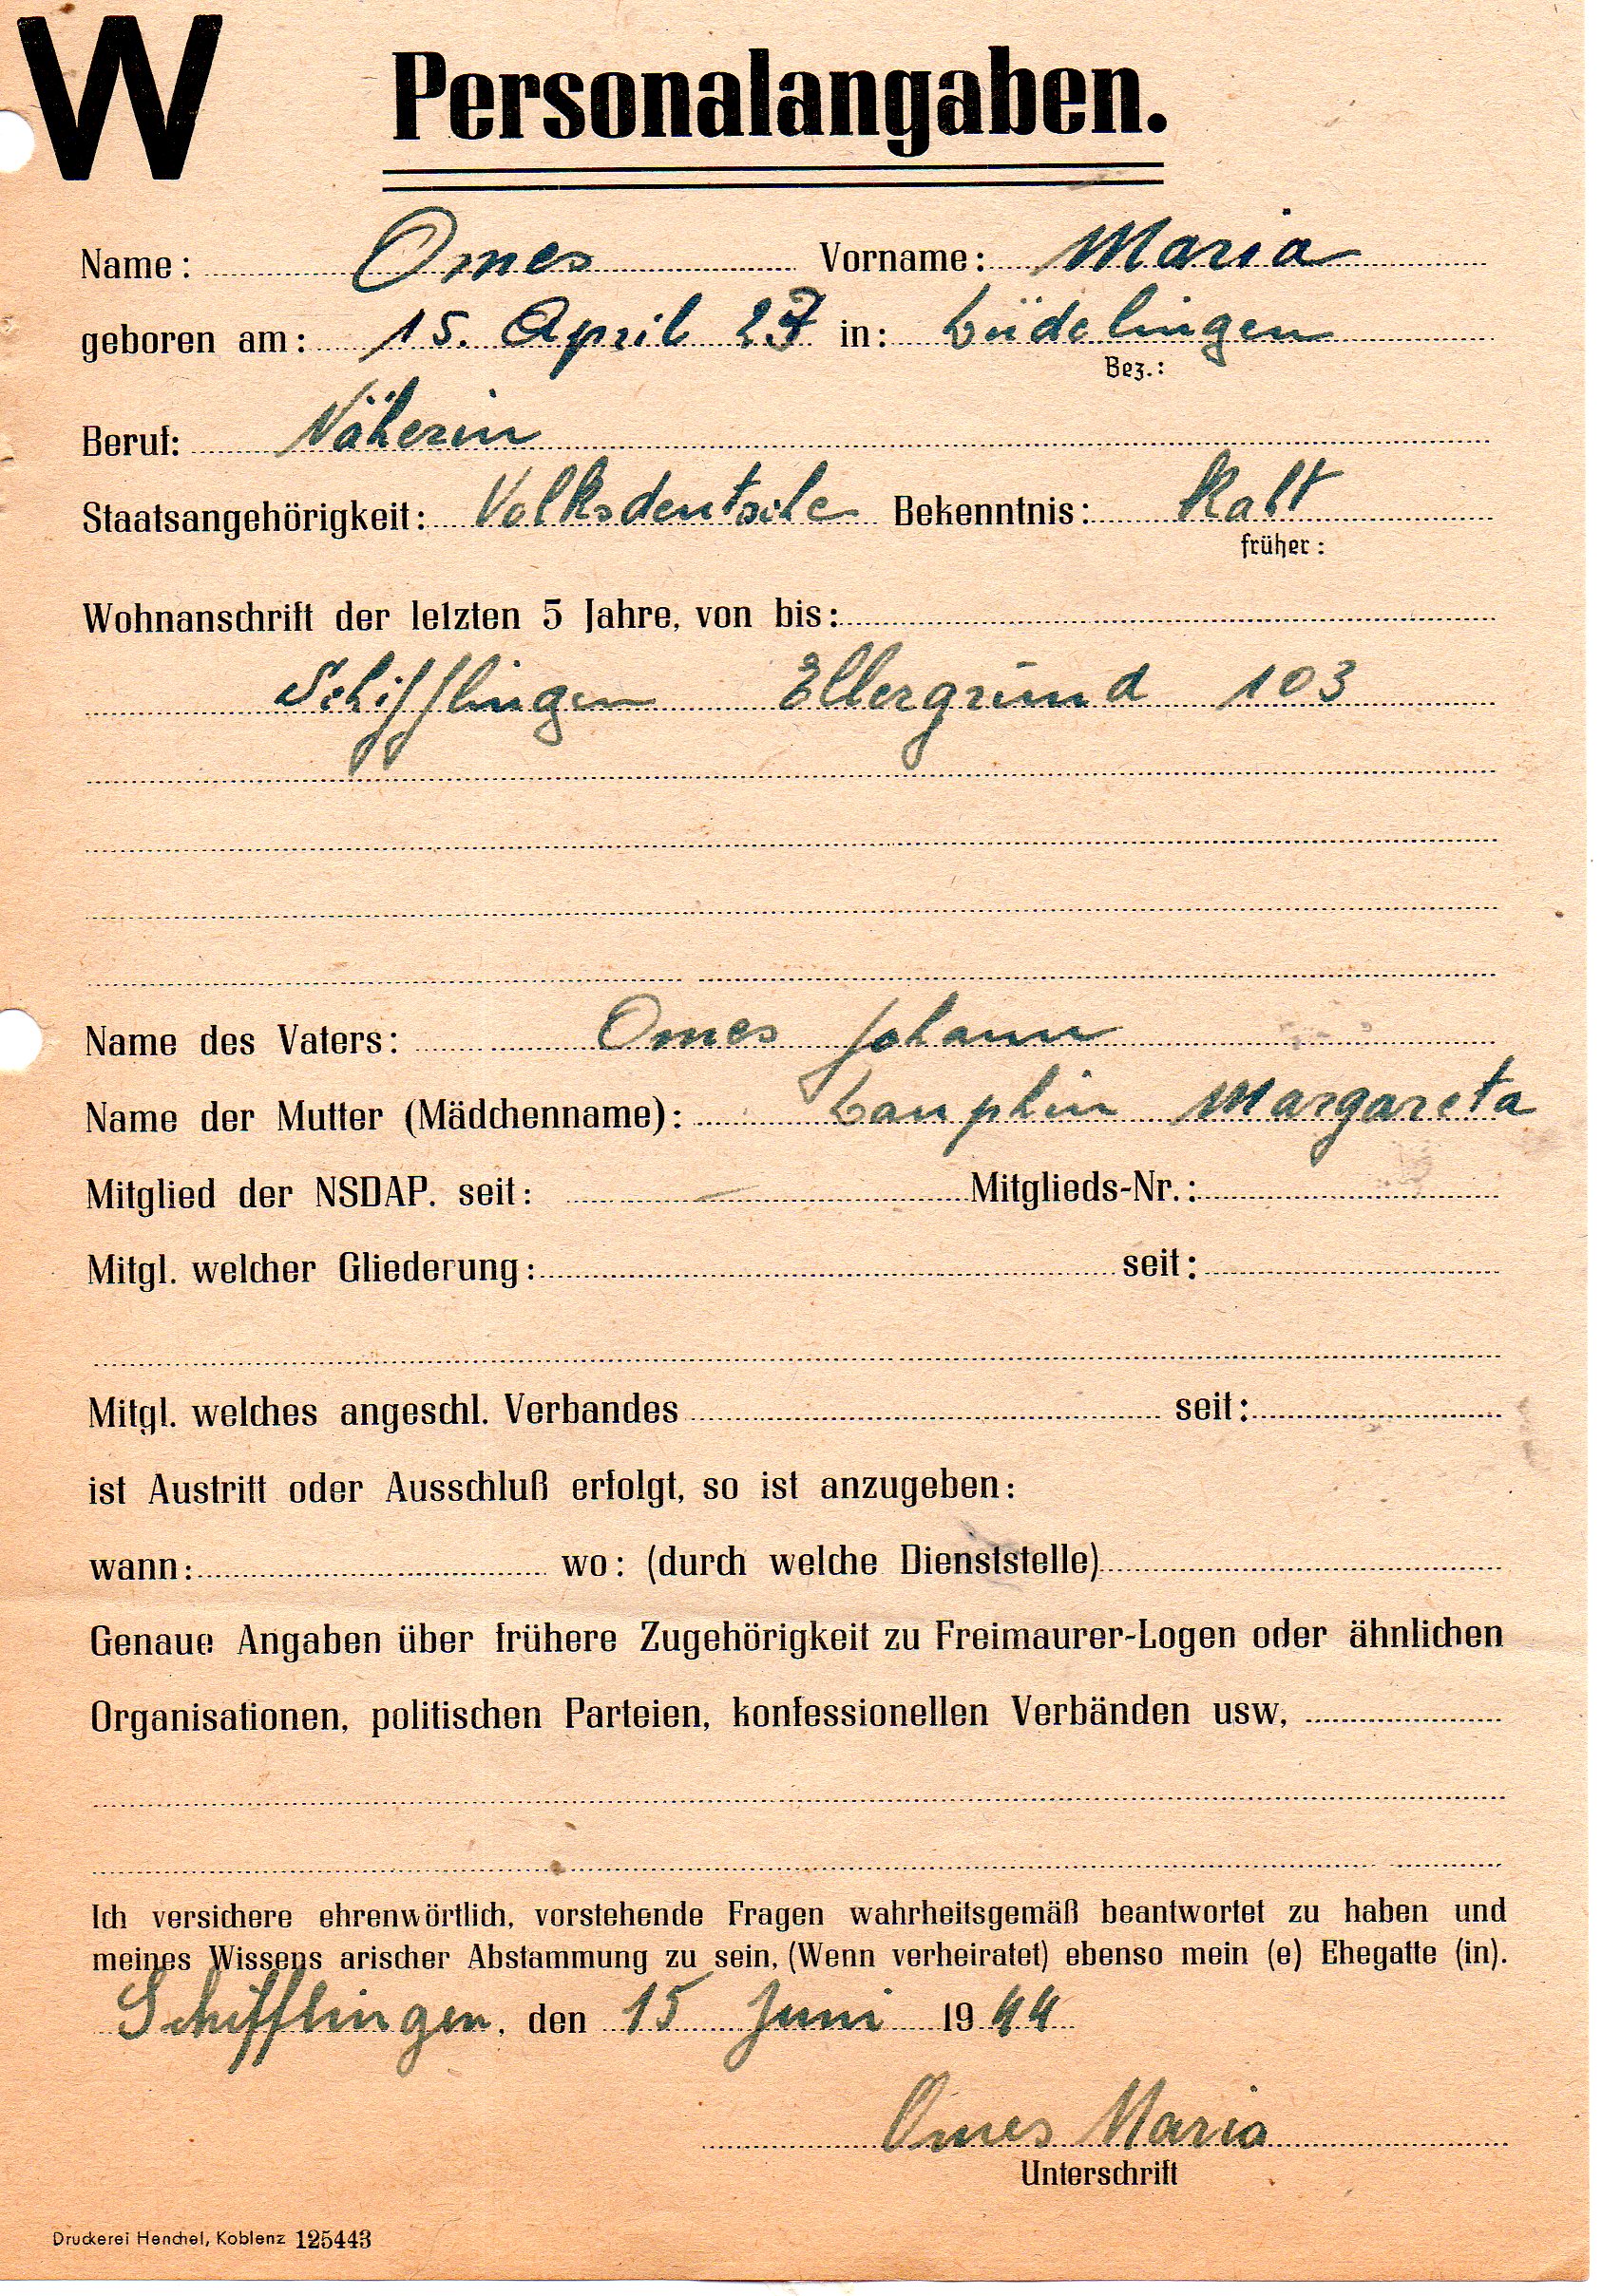 W
Personalangaben.
Name: Omes Vorname: Maria
geboren am: 15. April 27 in: Büdelingen
Bez.:
Beruf: Näherin
Staatsangehörigkeit: Volksdeutsche Bekenntnis: Kath
früher:
Wohnanschrift der letzten 5 Jahre, von bis:
Schifflingen Ellergrund 103
Name des Vaters: Omes Johann
Name der Mutter (Mädchenname): Margareta
Mitglied der NSDAP. seit: — Mitglieds-Nr.:
Mitgl. welcher Gliederung: seit:
Mitgl. welches angeschl. Verbandes seit:
ist Austritt oder Ausschluß erfolgt, so ist anzugeben:
wann: wo: (durch welche Dienststelle)
Genaue Angaben über frühere Zugehörigkeit zu Freimaurer-Logen oder ähnlichen
Organisationen, politischen Parteien, konfessionellen Verbänden usw,
Ich versichere ehrenwörtlich, vorstehende Fragen wahrheitsgemäß beantwortet zu haben und
meines Wissens arischer Abstammung zu sein, (Wenn verheiratet) ebenso mein (e) Ehegatte (in).
Schifflingen, den 15 Juni 1944
Omes Maria
Unterschrift
Druckerei Henchel, Koblenz 125443